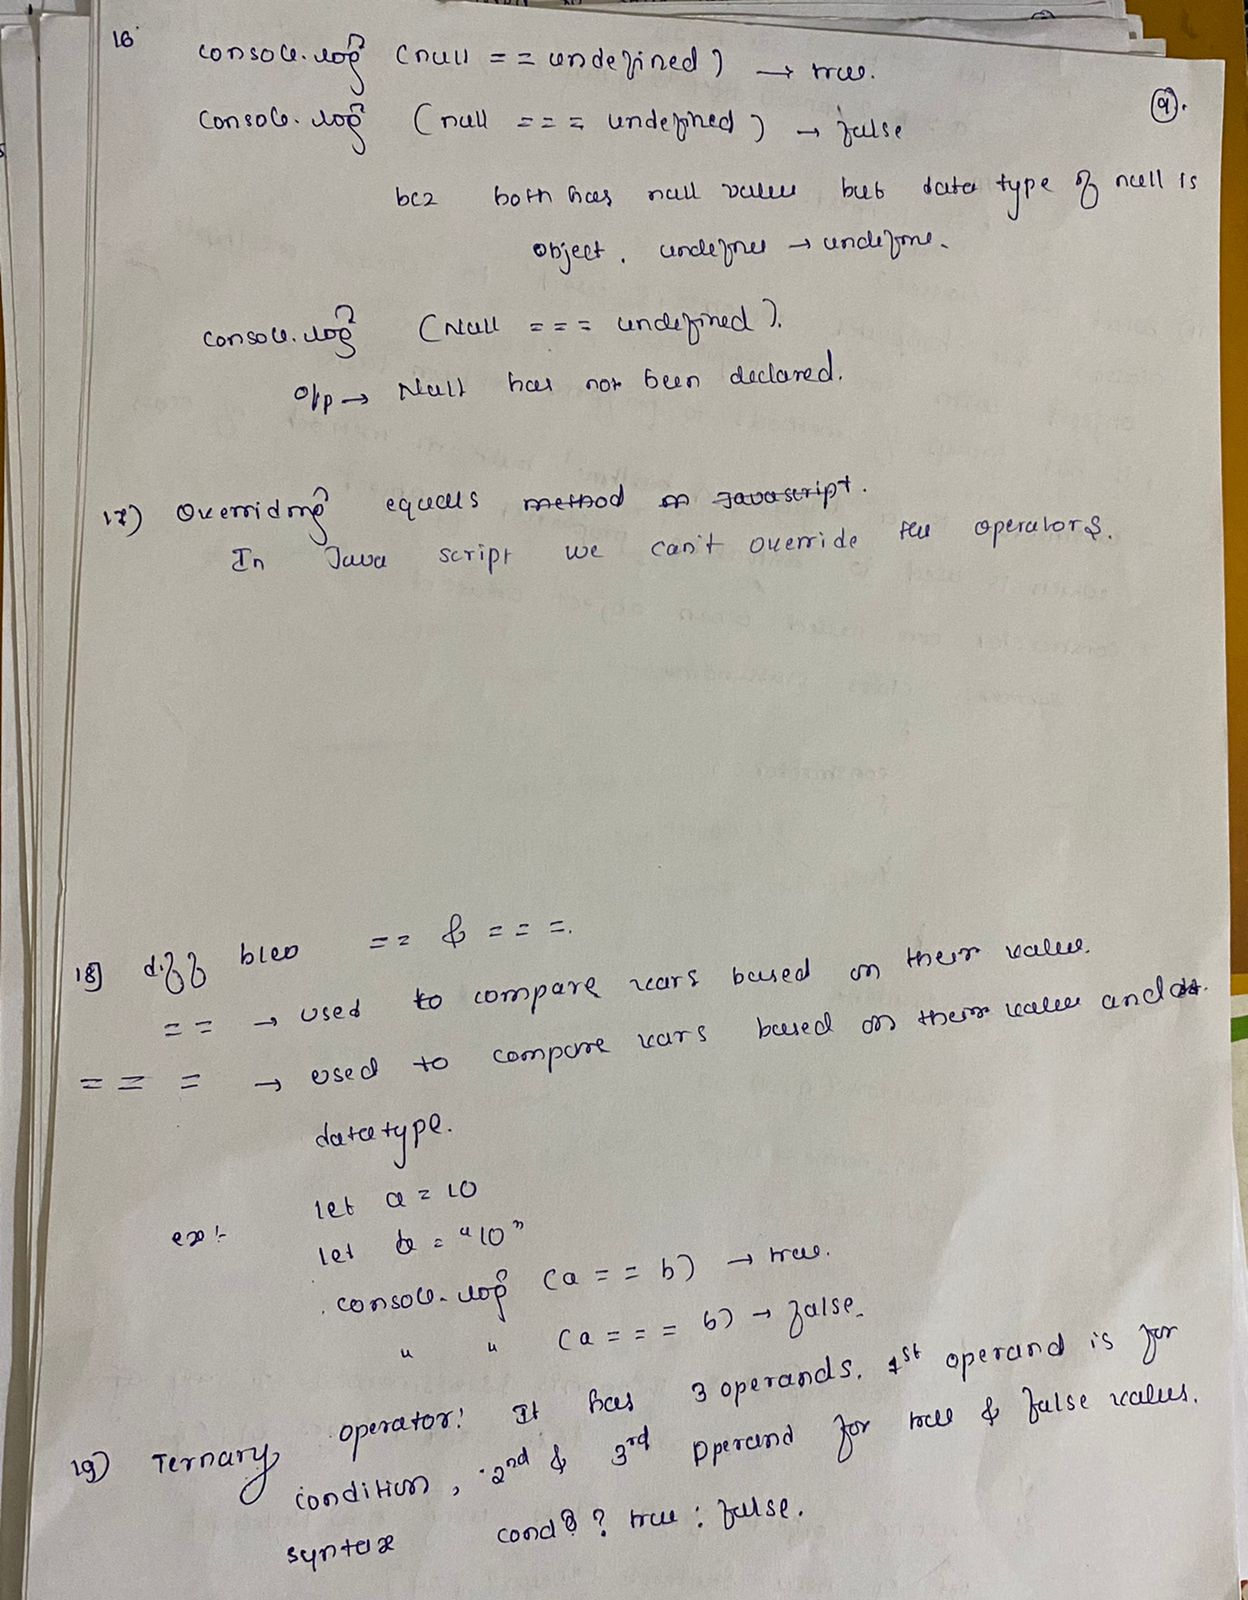 16 console.log (null == undefined) → true.
9.
console.log (null === undefined) → false
bcz both has null value but data type of null is
object. undefined → undefine.
console.log (Null === undefined).
O/p → Null has not been declared.
17) Overriding equals method in Javascript.
In Java script we can't override the operators.
18) diff b/w == & ===.
== → used to compare vars based on their value.
=== → used to compare vars based on their value and
datatype.
ex:- let a = 10
let b = "10"
console.log (a == b) → true.
" " (a === b) → false.
19) Ternary operator: It has 3 operands. 1st operand is for
condition, 2nd & 3rd operand for true & false values.
syntax cond? ? true : false.